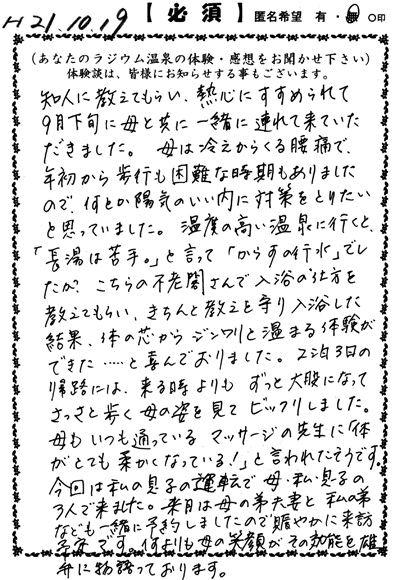 H21.10.19 【必須】 匿名希望 有・無 ○印
(あなたのラジウム温泉の体験・感想をお聞かせ下さい)
体験談は、皆様にお知らせする事もございます。
知人に教えてもらい、熱心にすすめられて
9月下旬に母と共に一緒に連れて来ていた
だきました。 母は冷えからくる腰痛で、
年初から歩行も困難な時期もありました
ので、何とか陽気のいい内に対策をとりたい
と思っていました。 温度の高い温泉に行くと、
「長湯は苦手。」と言って「からすの行水」でし
たが、こちらの不老閣さんで入浴の仕方を
教えてもらい、きちんと教えを守り入浴した
結果、体の芯からジンワリと温まる体験が
できた……と喜んでおりました。2泊3日の
帰路には、来る時よりもずっと大股になって
さっさと歩く母の姿を見てビックリしました。
母もいつも通っているマッサージの先生に「体
がとても柔かくなっている!」と言われたそうです。
今回は私の息子の運転で母・私・息子の
3人で来ました。来月は母の弟夫妻と私の弟
なども一緒に予約しましたので賑やかに来訪
予定です。何よりも母の笑顔がその効能を雄
弁に物語っております。